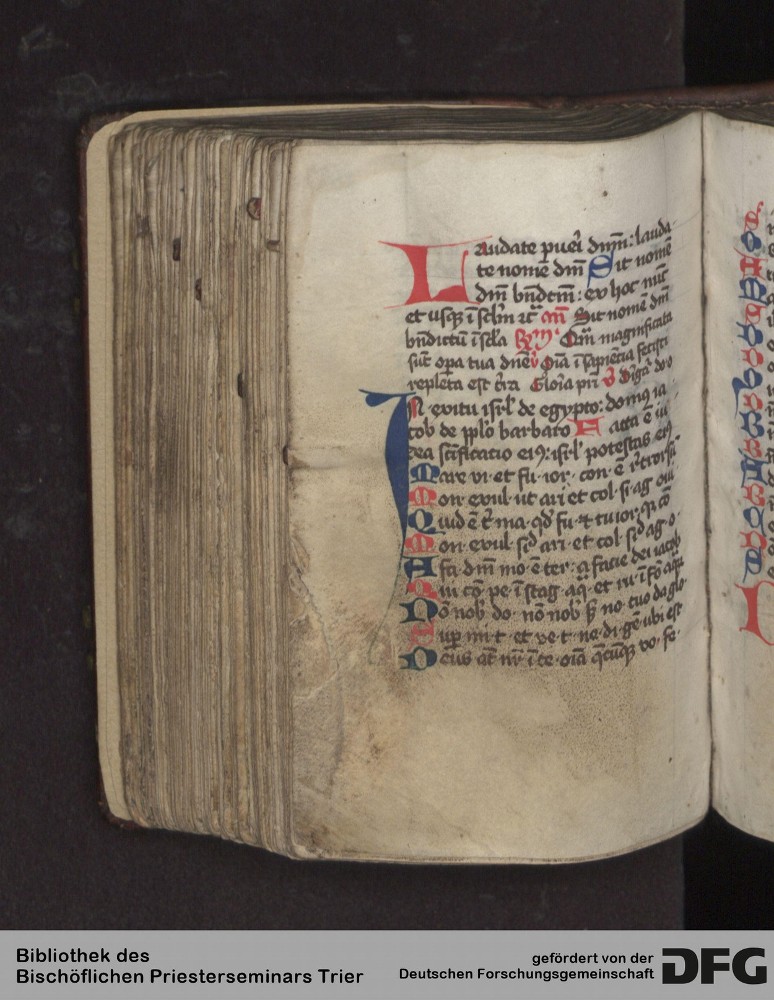 Laudate pueri dnm: lauda
te nomē dnī Sit nomē
dnī bn̄dcm̄: ex hoc nūc
et usq; ī sclm̄ 
Sit nomē dnī
bn̄dictū ī scl̄a Qm̄ magnificata
sūt oꝑa tua dn̄e Oīa ī sapiēcia fecisti
repleta est t̄ra Gloīa pri
In exitu isrl̄ de egypto: domꝰ ia
cob de pplō barbaro Facta ē iu
dea sc̄ificatio eiꝰ: isrl̄ potestas eiꝰ
Mare vi· et fu· ior· con· ē retrorsū
Mon· exul· ut ari et col· si· ag· oui
Quid ē t· ma· qd̄ fu· et tu ior· qr cō
Mon· exul· sic̄ ari· et col· sic̄ ag· o·
A fa· dnī mo· ē ter· a facie dei iacob
Qui cō· pe· ī stag· aq̄· et ru· ī fō aq̄a
Nō nob· do· nō nob· s; no· tuo da glo·
Suꝑ mi· t· et ve· t· ne· di· gē ubi est
Deus at̄ nr̄ ī ce· oīa q̄cūq; vo· fe·
Bibliothek des
Bischöflichen Priesterseminars Trier
gefördert von der
Deutschen Forschungsgemeinschaft
DFG